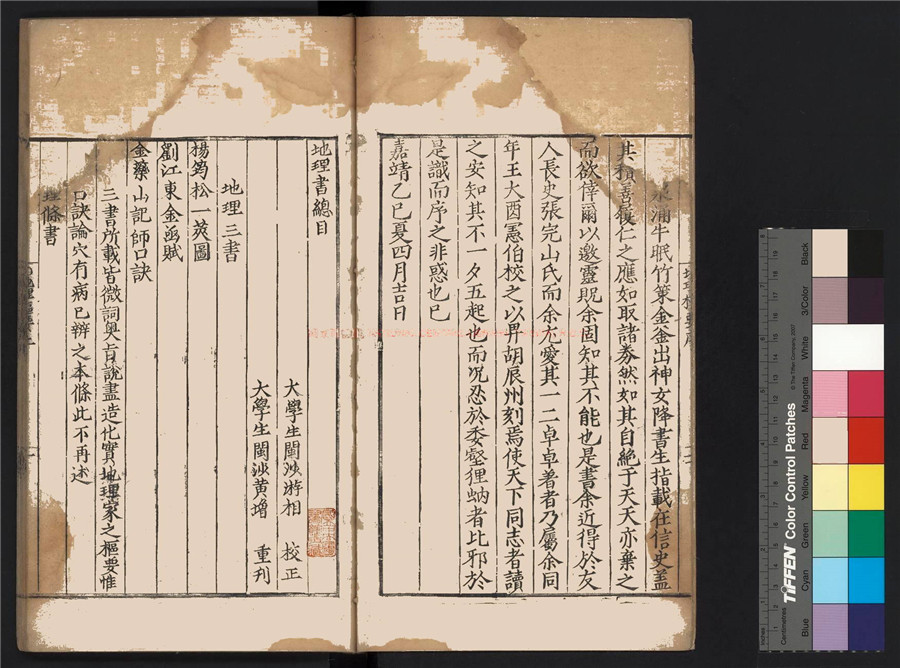 浦牛眠竹策金釜出神女降書生指載在信史蓋
其積善履仁之應如取諸券然如其自絶于天天亦棄之
而欲倖爾以邀靈貺余固知其不能也是書余近得於友
人長史張完山氏而余尤愛其一二卓卓著者乃屬余同
年王大酉憲伯校之以畀胡辰州刻焉使天下同志者讀
之安知其不一夕五起也而况忍於委壑狸蚋者比邪於
是識而序之非惑也已
嘉靖乙巳夏四月吉日
地理書總目
大學生閩㳂游相 校正
大學生閩㳂黄增 重刋
地理三書
楊筠松一莢圖
劉江東金函賦
金藥山記師口訣
三書所載皆微詞奥旨説盡造化實地理家之樞要惟
口訣論穴有病已辨之本條此不再述
條書
Black
3/Color
White
Magenta
Red
Yellow
Green
Cyan
Blue
© The Tiffen Company, 2007
TIFFEN Color Control Patches
Centimetres
Inches